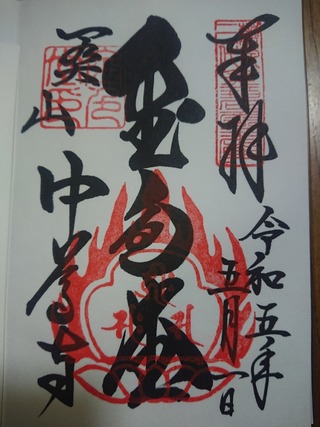 奉拝
令和五年
五月一日
金色堂
関山
中尊寺